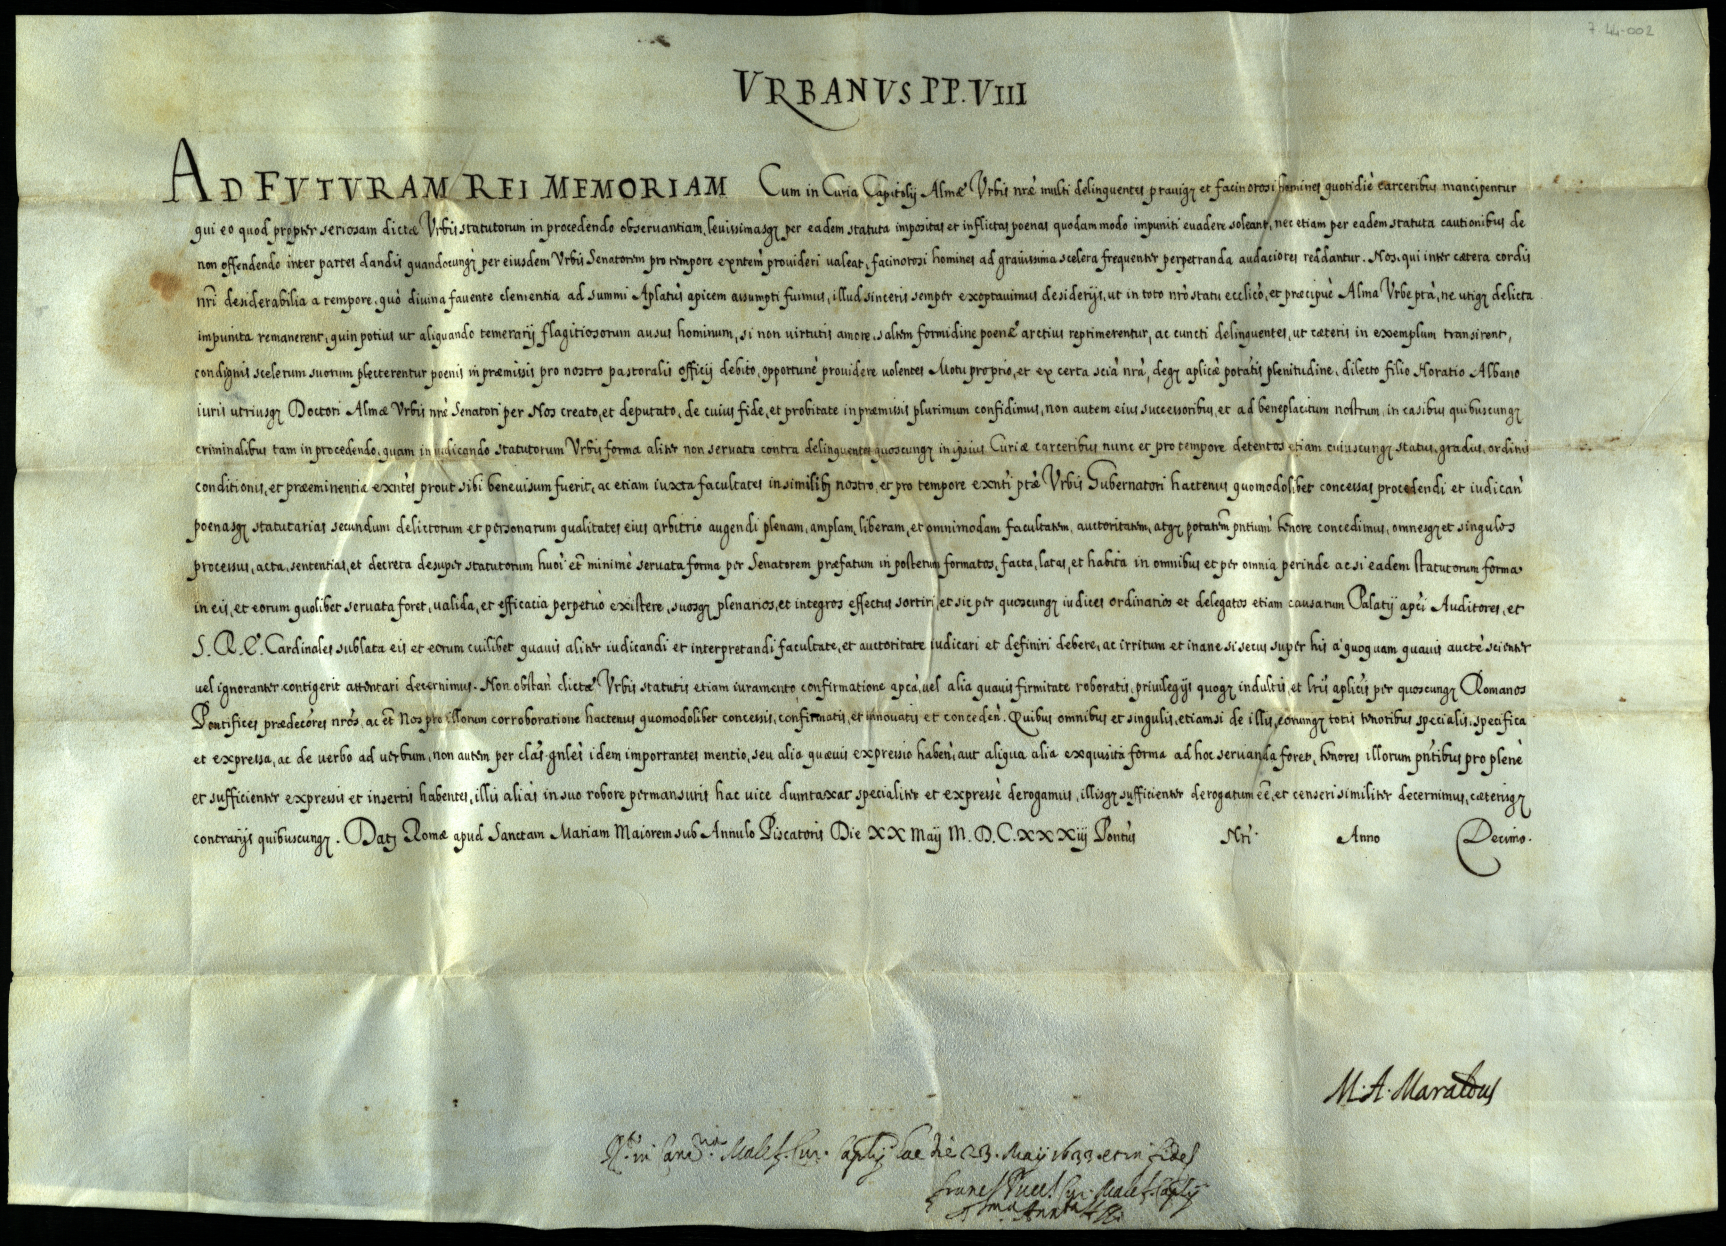 7 44-002
VRBANVS PP. VIII
AD FVTVRAM REI MEMORIAM Cum in Curia Capitolij Almæ Vrbis nræ multi delinquentes prauiq₃ et facinorosi homines quotidiè carceribus mancipentur
qui eo quod propter seriosam dictæ Vrbis statutorum in procedendo obseruantiam, leuissimasq₃ per eadem statuta impositas et inflictas poenas quodammodo impuniti euadere soleant, nec etiam per eadem statuta cautionibus de
non offendendo inter partes dandis quandocunq₃ per eiusdem Vrbis Senatorem pro tempore exñtem prouideri ualeat, facinorosi homines ad grauissima scelera frequenter perpetranda audaciores reddantur. Nos, qui inter cætera cordis
nr̃i desiderabilia a tempore, quò diuina fauente clementia ad summi Aplatùs apicem assumpti fuimus, illud sinceris semper exoptauimus desiderijs, ut in toto nrò statu ecclicò, et præcipuè Alma Vrbe ptà, ne utiq₃ delicta
impunita remanerent, quin potius ut aliquando temerarij flagitiosorum ausus hominum, si non uirtutis amore, saltem formidine poenæ arctius reprimerentur, ac cuncti delinquentes, ut cæteris in exemplum transirent,
condignis scelerum suorum plecterentur poenis in præmissis pro nostro pastoralis officij debito, opportunè prouidere uolentes Motu proprio, et ex certa scià nrà, deq₃ aplicæ potãtis plenitudine, dilecto filio Horatio Albano
iuris utriusq₃ Doctori Almæ Vrbis nrè Senatori per Nos creato, et deputato, de cuius fide, et probitate in præmissis plurimum confidimus, non autem eius successoribus, et ad beneplacitum nostrum, in casibus quibuscunq₃
criminalibus tam in procedendo, quam in iudicando statutorum Vrbis forma aliter non seruata contra delinquentes quoscunq₃ in ipsius Curiæ carceribus nunc et pro tempore detentos etiam cuiuscunq₃ status, gradus, ordinis
conditionis, et præeminentiæ exñtes prout sibi beneuisum fuerit, ac etiam iuxta facultates in similib₃ nostro, et pro tempore exñti ptæ Vrbis Gubernatori hactenus quomodolibet concessas procedendi et iudicañ
poenasq₃ statutarias secundum delictorum et personarum qualitates eius arbitrio augendi plenam, amplam, liberam, et omnimodam facultatem, auctoritatem, atq₃ potãtem pñtium tenore concedimus, omnesq₃ et singulos
processus, acta, sententias, et decreta desuper statutorum huoi et̃ minimè seruata forma per Senatorem præfatum in posterum formatos, facta, latas, et habita in omnibus et per omnia perinde ac si eadem statutorum forma
in eis, et eorum quolibet seruata foret, ualida, et efficacia perpetuò existere, suosq₃ plenarios, et integros effectus sortiri, et sic per quoscunq₃ iudices ordinarios et delegatos etiam causarum Palatij apc̃i Auditores, et
S. R. E. Cardinales sublata eis et eorum cuilibet quauis aliter iudicandi et interpretandi facultate, et auctoritate iudicari et definiri debere, ac irritum et inane si secus super his a' quoquam quauis auctè scienter
uel ignoranter contigerit attentari decernimus. Non obstañ dictæ Vrbis statutis etiam iuramento confirmatione apcà, uel alia quauis firmitate roboratis, priuilegijs quoq₃ indultis, et lris aplicis per quoscunq₃ Romanos
Pontifices prædecres nros, ac et̃ Nos pro illorum corroboratione hactenus quomodolibet concessis, confirmatis, et innouatis et concedeñ. Quibus omnibus et singulis, etiamsi de illis, eorunq₃ totis tenoribus specialis, specifica
et expressa, ac de uerbo ad uerbum, non autem per clãs gñles idem importantes mentio, seu alia quæuis expressio habeñ, aut aliqua alia exquisita forma ad hoc seruanda foret, tenores illorum pñtibus pro plenè
et sufficienter expressis et insertis habentes, illis aliàs in suo robore permansuris hac uice dumtaxat specialiter et expressè derogamus, illisq₃ sufficienter derogatum eẽ, et censeri similiter decernimus, cæterisq₃
contrarijs quibuscunq₃. Dat₃ Romæ apud Sanctam Mariam Maiorem sub Annulo Piscatoris Die XX Maij M. D. C. XXXiij Pontùs Nri Anno Decimo.
M. A. Maraldus
die 23. Maij 1633. et in fidem